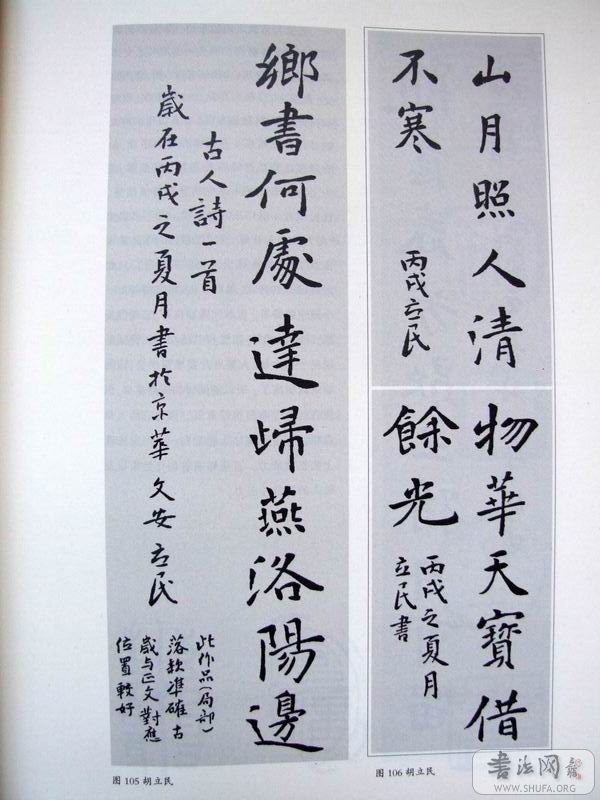 山月照人清
不寒
丙戌立民
物華天寶借
餘光
丙戌之夏月
立民書
图 106 胡立民
鄉書何處達歸燕洛陽邊
古人詩一首
歲在丙戌之夏月書於京華文安立民
此作品(局部)
落款準確 古
歲与正文對應
位置較好
图 105 胡立民
書法网
WWW.SHUFA.ORG